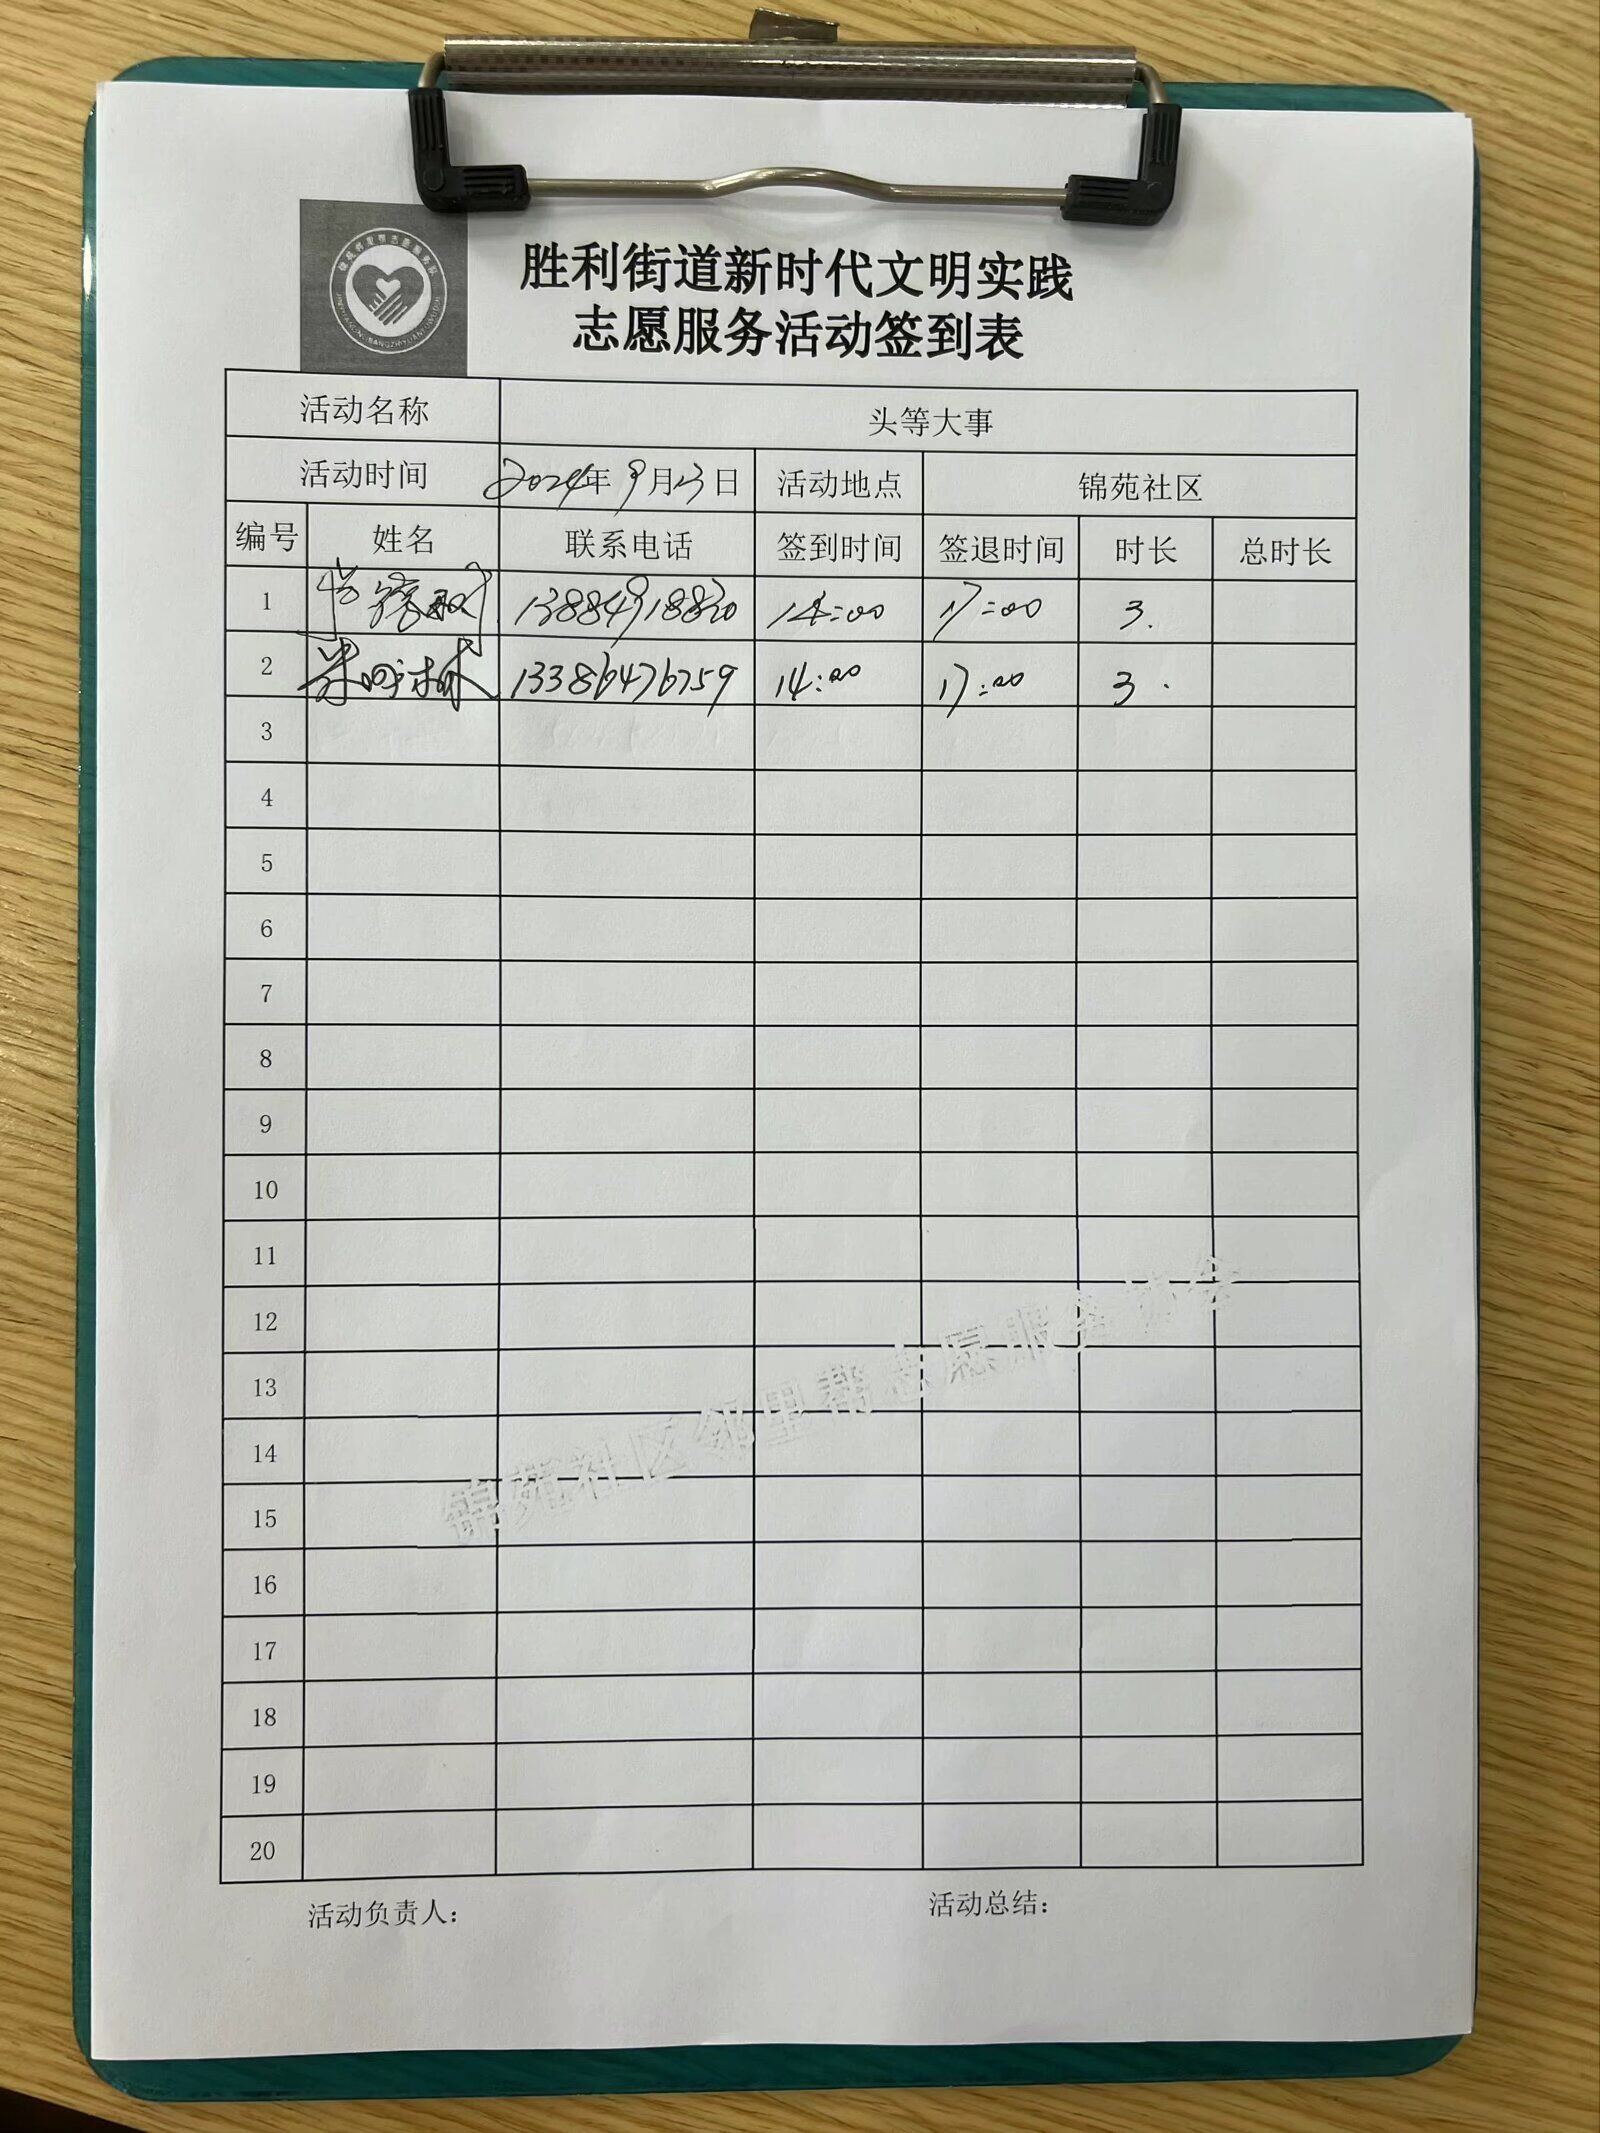 胜利街道新时代文明实践
志愿服务活动签到表
活动名称 头等大事
活动时间 2024年9月13日 活动地点 锦苑社区
编号 姓名 联系电话 签到时间 签退时间 时长 总时长
1 13884918830 14:00 17:00 3.
2 13386476759 14:00 17:00 3.
3
4
5
6
7
8
9
10
11
12
13
14
15
16
17
18
19
20
锦苑社区邻里帮志愿服务协会
活动负责人： 活动总结：